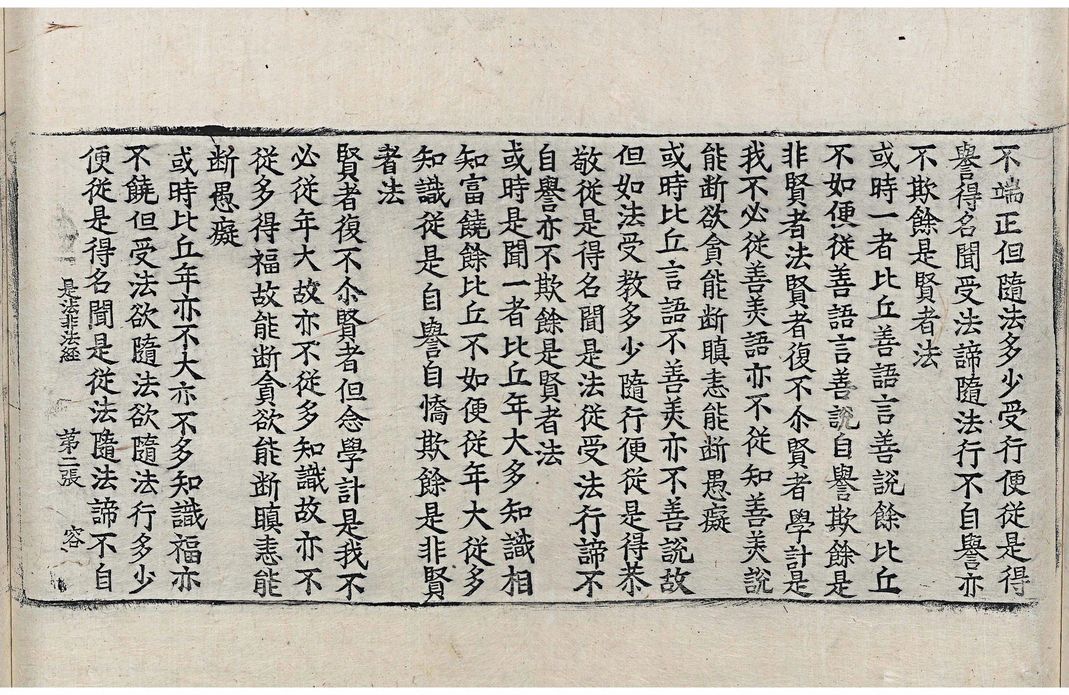 不端正但隨法多少受行便從是得
譽得名聞受法諦隨法行不自譽亦
不欺餘是賢者法
或時一者比丘善語言善説餘比丘
不如便從善語言善説自譽欺餘是
非賢者法賢者復不尒賢者學計是
我不必從善美語亦不從知善美說
能断欲貪能断瞋恚能断愚癡
或時比丘言語不善美亦不善説故
但如法受教多少隨行便從是得恭
敬從是得名聞是法從受法行諦不
自譽亦不欺餘是賢者法
或時是聞一者比丘年大多知識相
知富饒餘比丘不如便從年大從多
知識從是自譽自憍欺餘是非賢
者法
賢者復不尒賢者但念學計是我不
必從年大故亦不從多知識故亦不
從多得福故能断貪欲能断瞋恚能
断愚癡
或時比丘年亦不大亦不多知識福亦
不饒但受法欲隨法欲隨法行多少
便從是得名聞是從法隨法諦不自
是法非法經 第二張 容